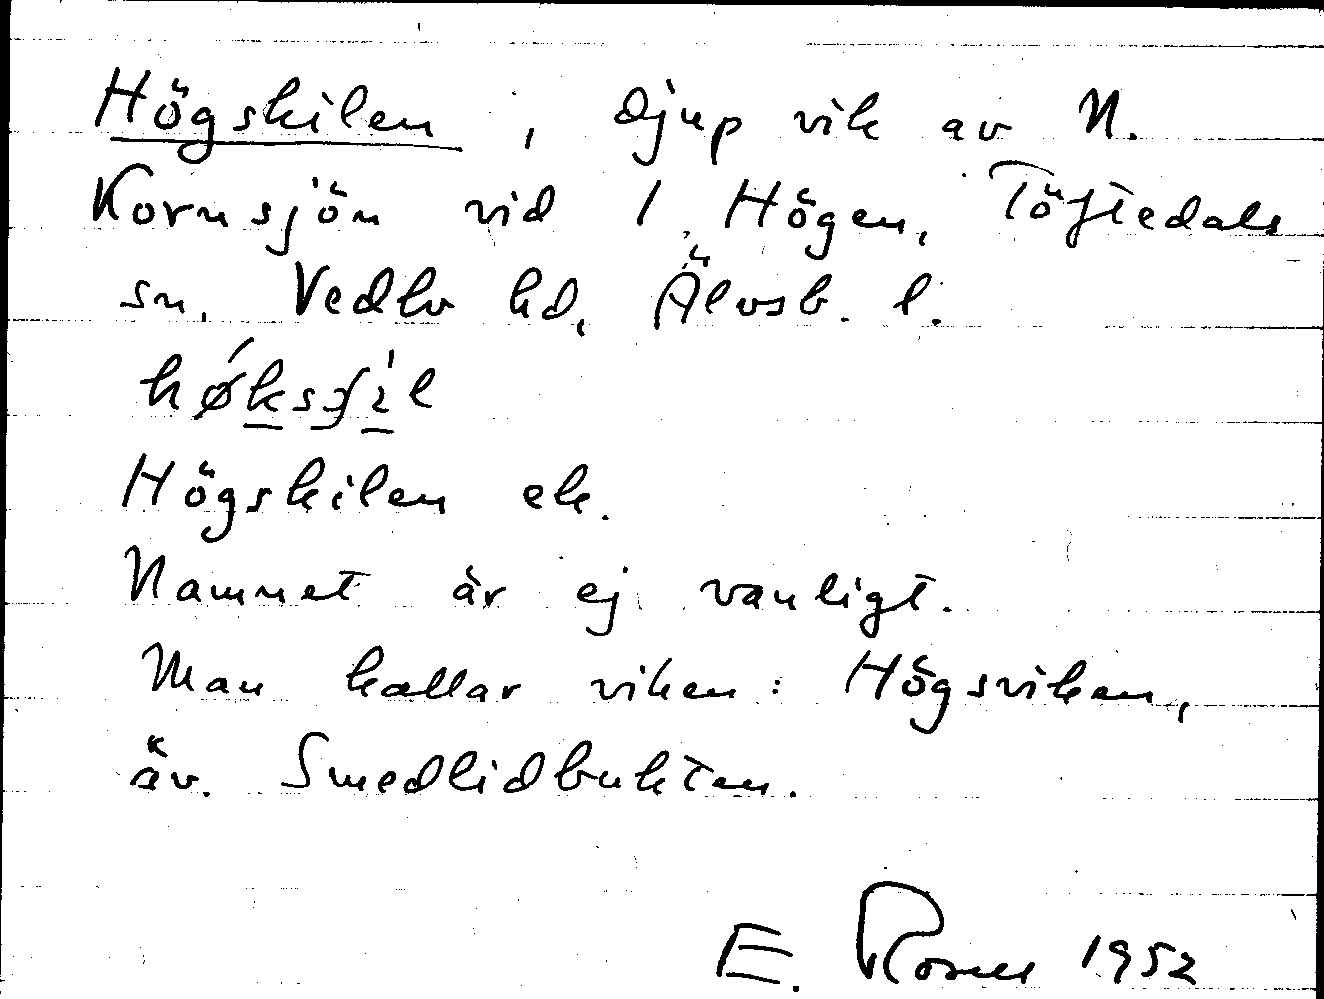 Högskilen, djup vik av N.
Kornsjön vid 1 Högen, Töftedals
sn, Vedbo hd, Älvsb. l.
Högskilen ek.
Namnet är ej vanligt.
Man kallar viken: Högsviken,
äv. Smedlidbukten.
E. 1952